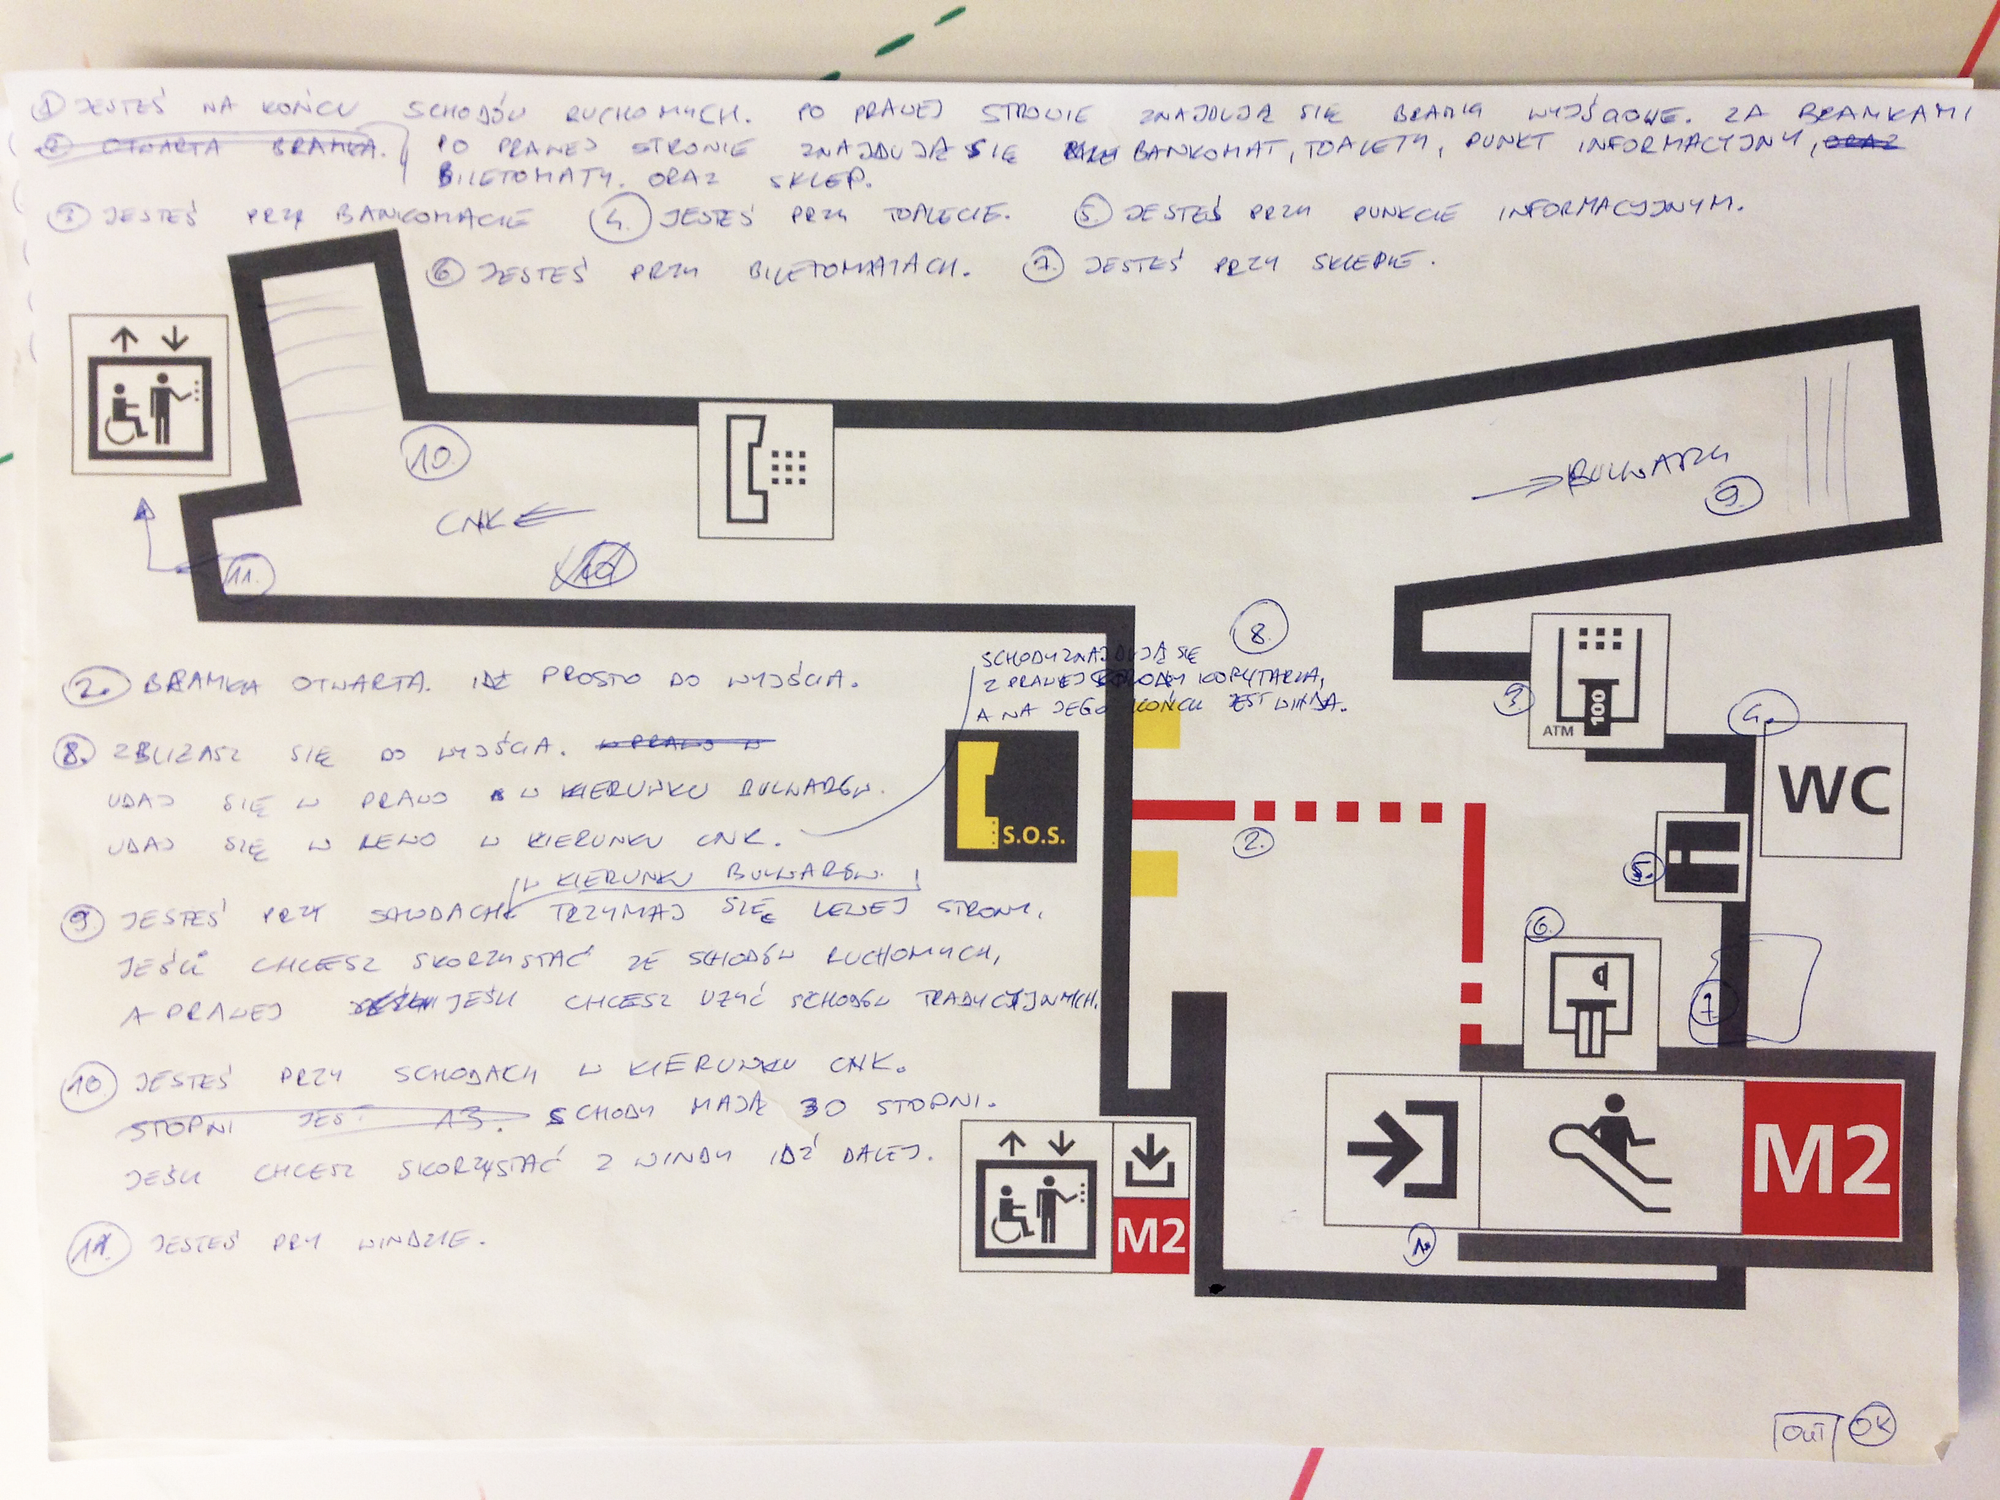 ① JESTEŚ NA KOŃCU SCHODÓW RUCHOMYCH. PO PRAWEJ STRONIE ZNAJDUJĄ SIĘ BRAMKI WYJŚCIOWE. ZA BRAMKAMI
② OTWARTA BRAMKA. PO PRAWEJ STRONIE ZNAJDUJĄ SIĘ BANKOMAT, TOALETY, PUNKT INFORMACYJNY, ORAZ
BILETOMATY. ORAZ SKLEP.
③ JESTEŚ PRZY BANKOMACIE ④ JESTEŚ PRZY TOALECIE. ⑤ JESTEŚ PRZY PUNKCIE INFORMACYJNYM.
⑥ JESTEŚ PRZY BILETOMATACH. ⑦ JESTEŚ PRZY SKLEPIE.
10.
CNK
→ BULWARY
9.
10
11.
8.
SCHODY ZNAJDUJĄ SIĘ
Z PRAWEJ STRONY KORYTARZA,
A NA JEGO KOŃCU JEST WINDA.
3.
100
ATM
4.
WC
2. BRAMKA OTWARTA. IDŹ PROSTO DO WYJŚCIA.
8. ZBLIŻASZ SIĘ DO WYJŚCIA. W PRAWO W
UDAJ SIĘ W PRAWO W KIERUNKU BULWARÓW.
UDAJ SIĘ W LEWO W KIERUNKU CNK.
S.O.S.
2.
5.
i
W KIERUNKU BULWARÓW.
9. JESTEŚ PRZY SCHODACH TRZYMAJ SIĘ LEWEJ STRONY,
JEŚLI CHCESZ SKORZYSTAĆ ZE SCHODÓW RUCHOMYCH,
A PRAWEJ JEŚLI CHCESZ UŻYĆ SCHODÓW TRADYCYJNYCH.
6.
7.
10. JESTEŚ PRZY SCHODACH W KIERUNKU CNK.
STOPNI JEST 13. SCHODY MAJĄ 30 STOPNI.
JEŚLI CHCESZ SKORZYSTAĆ Z WINDY IDŹ DALEJ.
11. JESTEŚ PRY WINDZIE.
M2
1.
M2
OUT OK